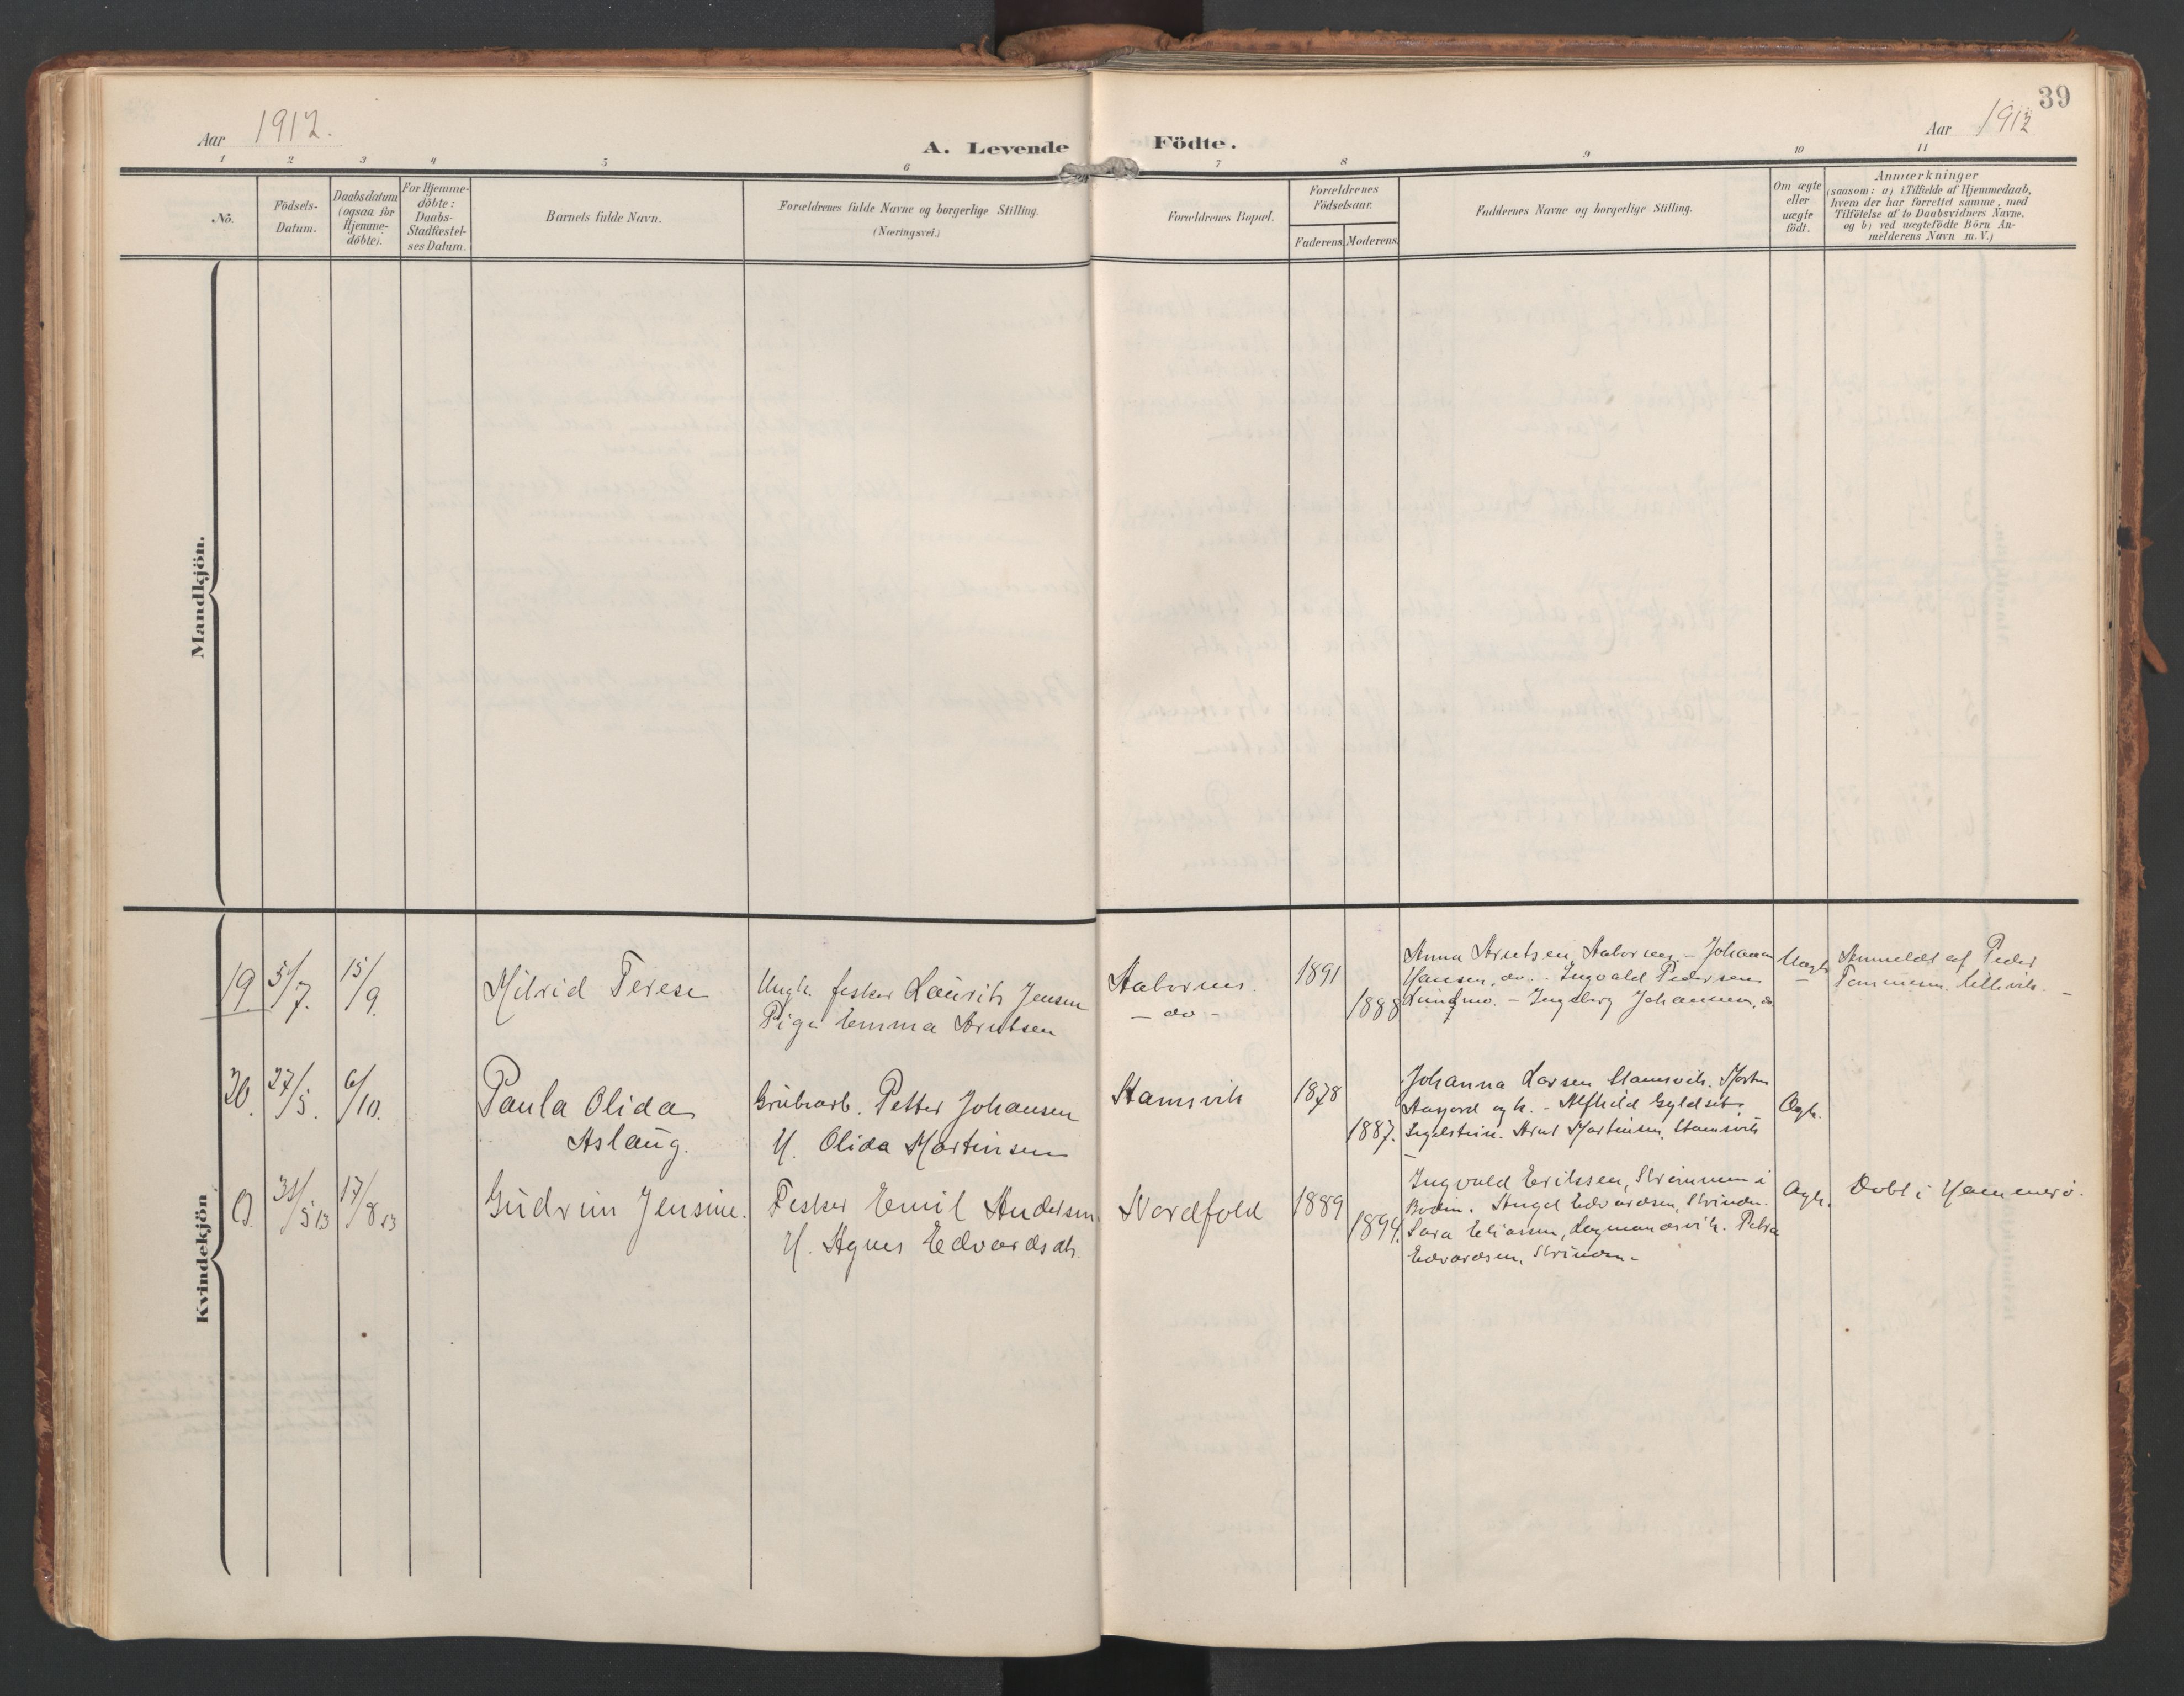 39
Aar 1912.
A. Levende Födte.
Aar 1912
1 2 3 4 5 6 7 8 9 10 11
No.
Födsels-
Datum.
Daabsdatum
(ogsaa for
Hjemme-
döbte).
For Hjemme-
döbte:
Daabs-
Stadfæstel-
ses Datum.
Barnets fulde Navn.
Forældrenes fulde Navne og borgerlige Stilling.
(Næringsvei.)
Forældrenes Bopæl.
Forældrenes
Födselsaar.
Faderens. Moderens.
Faddernes Navne og borgerlige Stilling.
Om ægte
eller
uægte
födt.
Anmærkninger
(saasom: a) i Tilfælde af Hjemmedaab,
hvem der har forrettet samme, med
Tilföielse af to Daabsvidners Navne.
og b) ved uægtefödte Börn An-
melderens Navn m. V.)
Mandkjön.
Kvindekjön
19 5/7. 15/9. Milrid Terese
Ungk. fisker Laurits Jensen
Pige Emma Arntsen
- do -
1891
1888
Anna Arntsen, - Johan
Hansen, do. - Ingvald Pedersen
- Ingeborg Johannesen, do
Uægte
Anmeldt af Peder
20. 27/5. 6/10. Paula Olida
Aslaug.
Grubearb. Petter Johansen
H. Olida Martinsen
Stamsvik
1878
1887.
Johanna Larsen Stamsvik. Morten
Aasjord og h. - Alfhild Gyldset,
Segelstein. Arnt Martinsen, Stamsvik
Ægte.
31/5 13 17/8 13 Gudrun Jensine.
Fisker Emil Andersen
H. Agnes Edvardsdtr.
Nordfold
1889
1894.
Ingvald Eriksen, Strömmen i
Bodin. Angel Edvardsen, Strinden.
Sara Eliassen, Lagmandsvik. Petra
Edvardsen, Strinden.
Ægte.
Döbt i Hammerö.